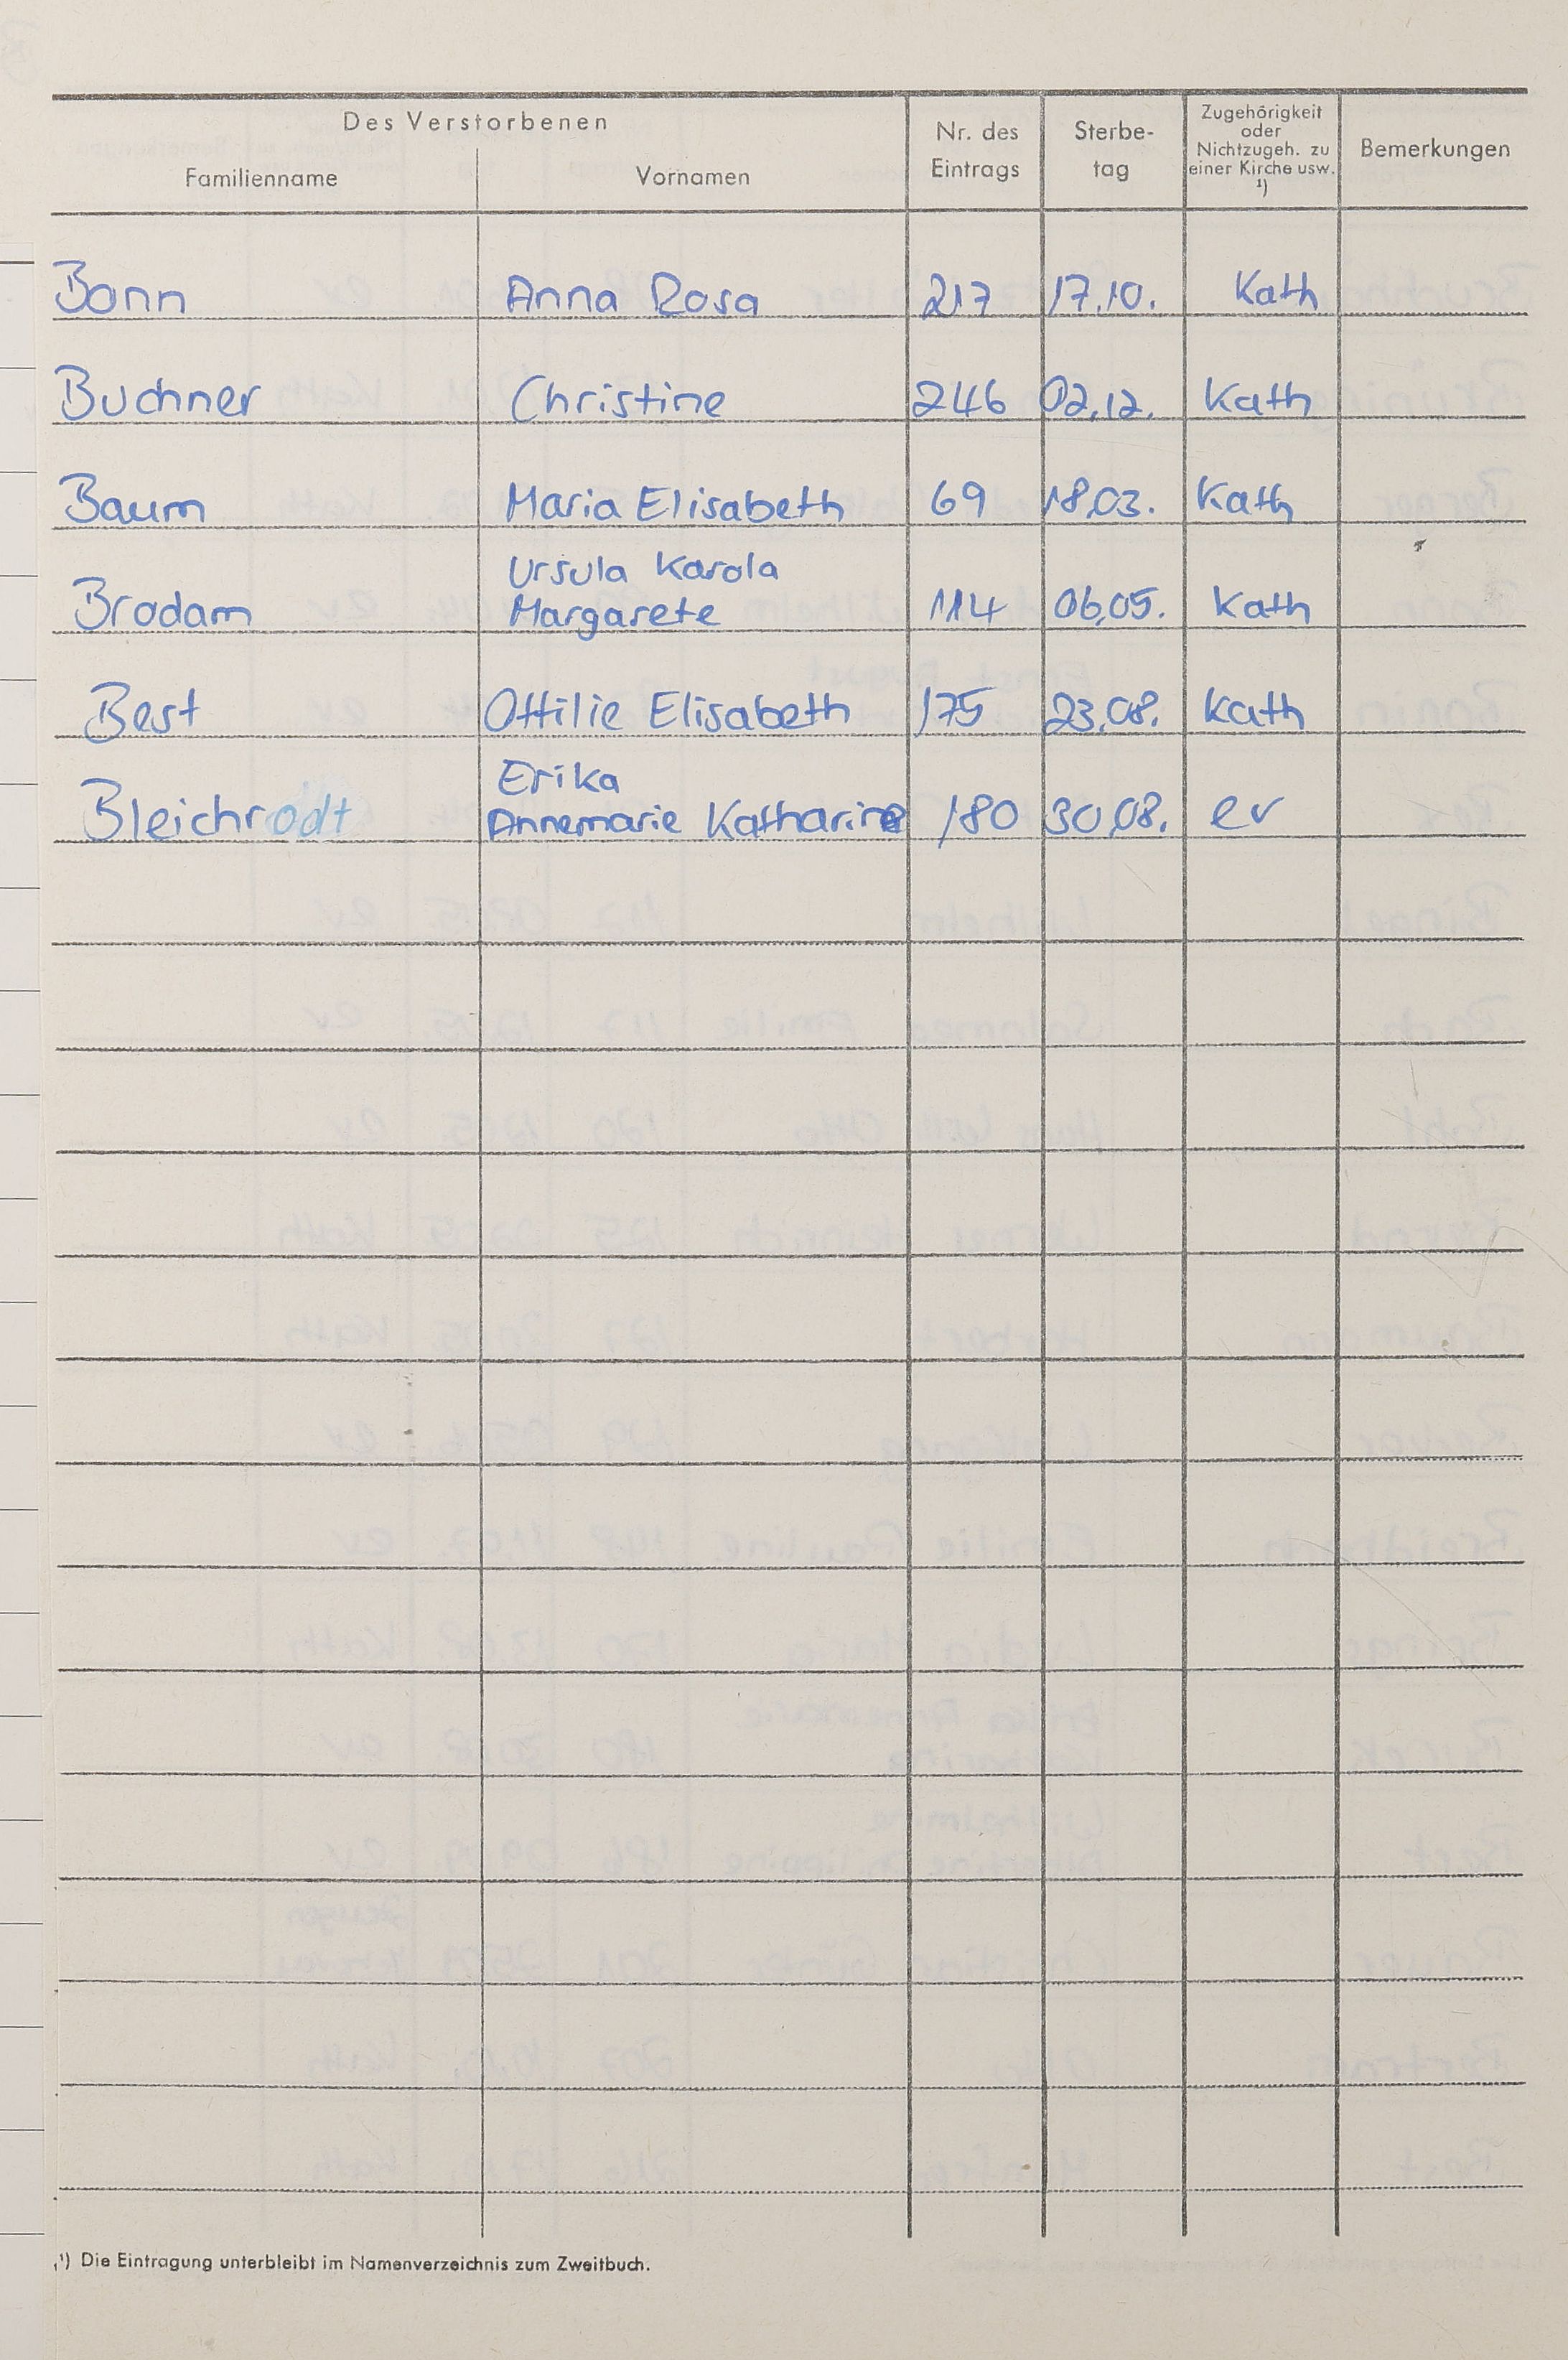 Des Verstorbenen
Familienname Vornamen
Nr. des
Eintrags
Sterbe-
tag
Zugehörigkeit
oder
Nichtzugeh. zu
einer Kirche usw.
¹)
Bemerkungen
Bonn Anna Rosa 217 17.10. Kath
Buchner Christine 246 02.12. Kath
Baum Maria Elisabeth 69 18.03. Kath
Ursula Karola
Brodam Margarete 114 06.05. Kath
Best Ottilie Elisabeth 175 23.08. Kath
Erika
Bleichrodt Annemarie Katharine 180 30.08. ev
¹) Die Eintragung unterbleibt im Namenverzeichnis zum Zweitbuch.